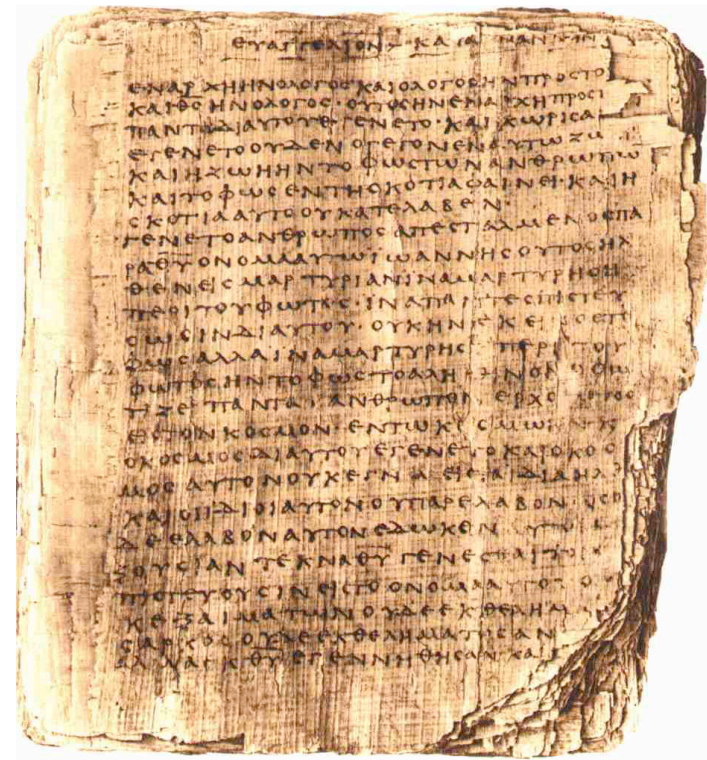 ΕΥΑΓΓΕΛΙΟΝ ΚΑΤΑ ΙΩΑΝΝΗΝ
ΕΝΑΡΧΗΗΝΟΛΟΓΟϹΚΑΙΟΛΟΓΟϹΗΝΠΡΟϹΤΟ
ΚΑΙΘ̅Ϲ̅ΗΝΟΛΟΓΟϹ·ΟΥΤΟϹΗΝΕΝΑΡΧΗΠΡΟϹΤ
ΠΑΝΤΑΔΙΑΥΤΟΥΕΓΕΝΕΤΟ·ΚΑΙΧΩΡΙϹΑ
ΕΓΕΝΕΤΟΟΥΔΕΝΟΓΕΓΟΝΕΝΑΥΤΩΖΩ
ΚΑΙΗΖΩΗΗΝΤΟΦΩϹΤΩΝΑΝΘΡΩΠΩ
ΚΑΙΤΟΦΩϹΕΝΤΗϹΚΟΤΙΑΦΑΙΝΕΙ·ΚΑΙΗ
ϹΚΟΤΙΑΑΥΤΟΟΥΚΑΤΕΛΑΒΕΝ·
ΓΕΝΕΤΟΑΝΘΡΩΠΟϹΑΠΕϹΤΑΛΜΕΝΟϹΠΑ
ΡΑΘ̅Υ̅ΟΝΟΜΑΑΥΤΩΙΩΑΝΝΗϹΟΥΤΟϹΗΛ
ΘΕΝΕΙϹΜΑΡΤΥΡΙΑΝΙΝΑΜΑΡΤΥΡΗϹΗ
ΠΕΡΙΤΟΥΦΩΤΟϹ·ΙΝΑΠΑΝΤΕϹΠΙϹΤΕΥ
ϹΩϹΙΝΔΙΑΥΤΟΥ·ΟΥΚΗΝΕΚΕΙΝΟϹΤΟ
ΦΩϹΑΛΛΑΙΝΑΜΑΡΤΥΡΗϹΗΠΕΡΙΤΟΥ
ΦΩΤΟϹΗΝΤΟΦΩϹΤΟΑΛΗΘΙΝΟΝΟΦΩ
ΤΙΖΕΙΠΑΝΤΑΑΝΘΡΩΠΟΝΕΡΧΟΜΕΝΟΝ
ΕΙϹΤΟΝΚΟϹΜΟΝ·ΕΝΤΩΚΟϹΜΩΗΝΚ
ΟΚΟϹΜΟϹΔΙΑΥΤΟΥΕΓΕΝΕΤΟΚΑΙΟΚΟϹ
ΜΟϹΑΥΤΟΝΟΥΚΕΓΝΩΕΙϹΤΑΙΔΙΑΗΛ
ΚΑΙΟΙΙΔΙΟΙΑΥΤΟΝΟΥΠΑΡΕΛΑΒΟΝ·ΟϹΟΙ
ΔΕΕΛΑΒΟΝΑΥΤΟΝΕΔΩΚΕΝΑΥΤΟΙ
ΞΟΥϹΙΑΝΤΕΚΝΑΘ̅Υ̅ΓΕΝΕϹΘΑΙΤΟΙ
ΠΙϹΤΕΥΟΥϹΙΝΕΙϹΤΟΟΝΟΜΑΑΥΤΟΥΟ
ΚΕΞΑΙΜΑΤΩΝΟΥΔΕΕΚΘΕΛΗΜΑ
ϹΑΡΚΟϹΟΥΔΕΕΚΘΕΛΗΜΑΤΟϹΑΝ
ΑΛΛΑΕΚΘ̅Υ̅ΕΓΕΝΝΗΘΗϹΑΝΚΑΙ